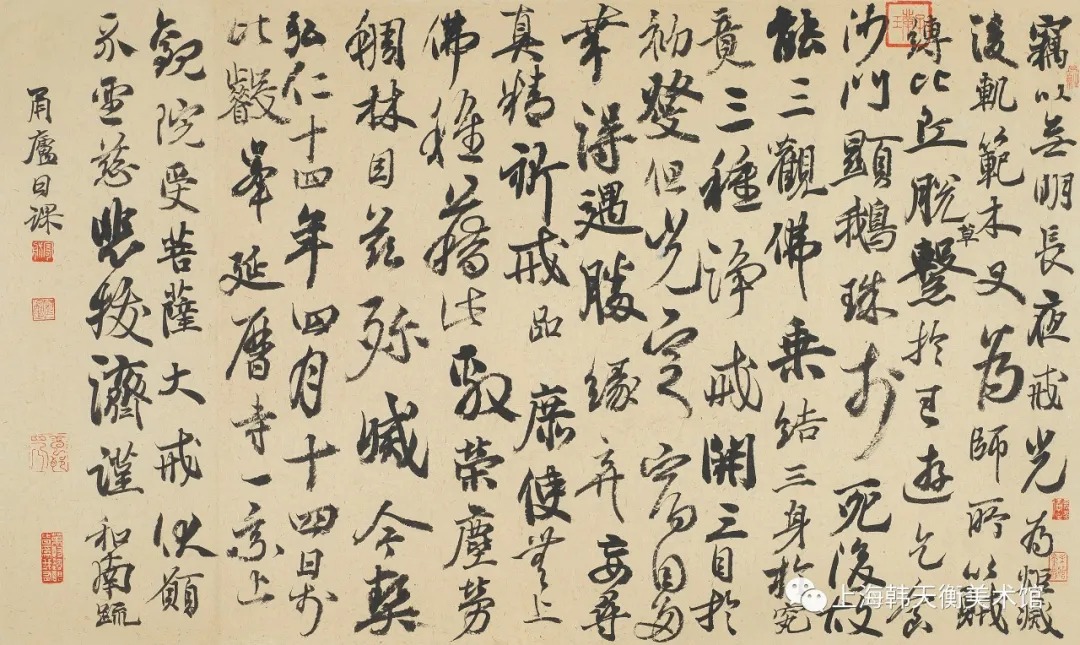 竊以无明長夜戒光為炬滅
後軌範木叉為師所以賊
縛比丘脫草繫於王遊乞食
沙門顯鵝珠於死後故
能三觀佛乗結三身於究
竟三種淨戒開三目於
初發但光定宿因多
幸得遇勝緣弃妄尋
真精祈戒品庶使无上
佛種蔭此敷榮塵勞
稠林自茲殄滅今契
弘仁十四年四月十四日於
比叡峯延曆寺一乗止
觀院受菩薩大戒伏願
不吝慈悲拔濟謹和南疏
甬廬日課
上海韩天衡美术馆